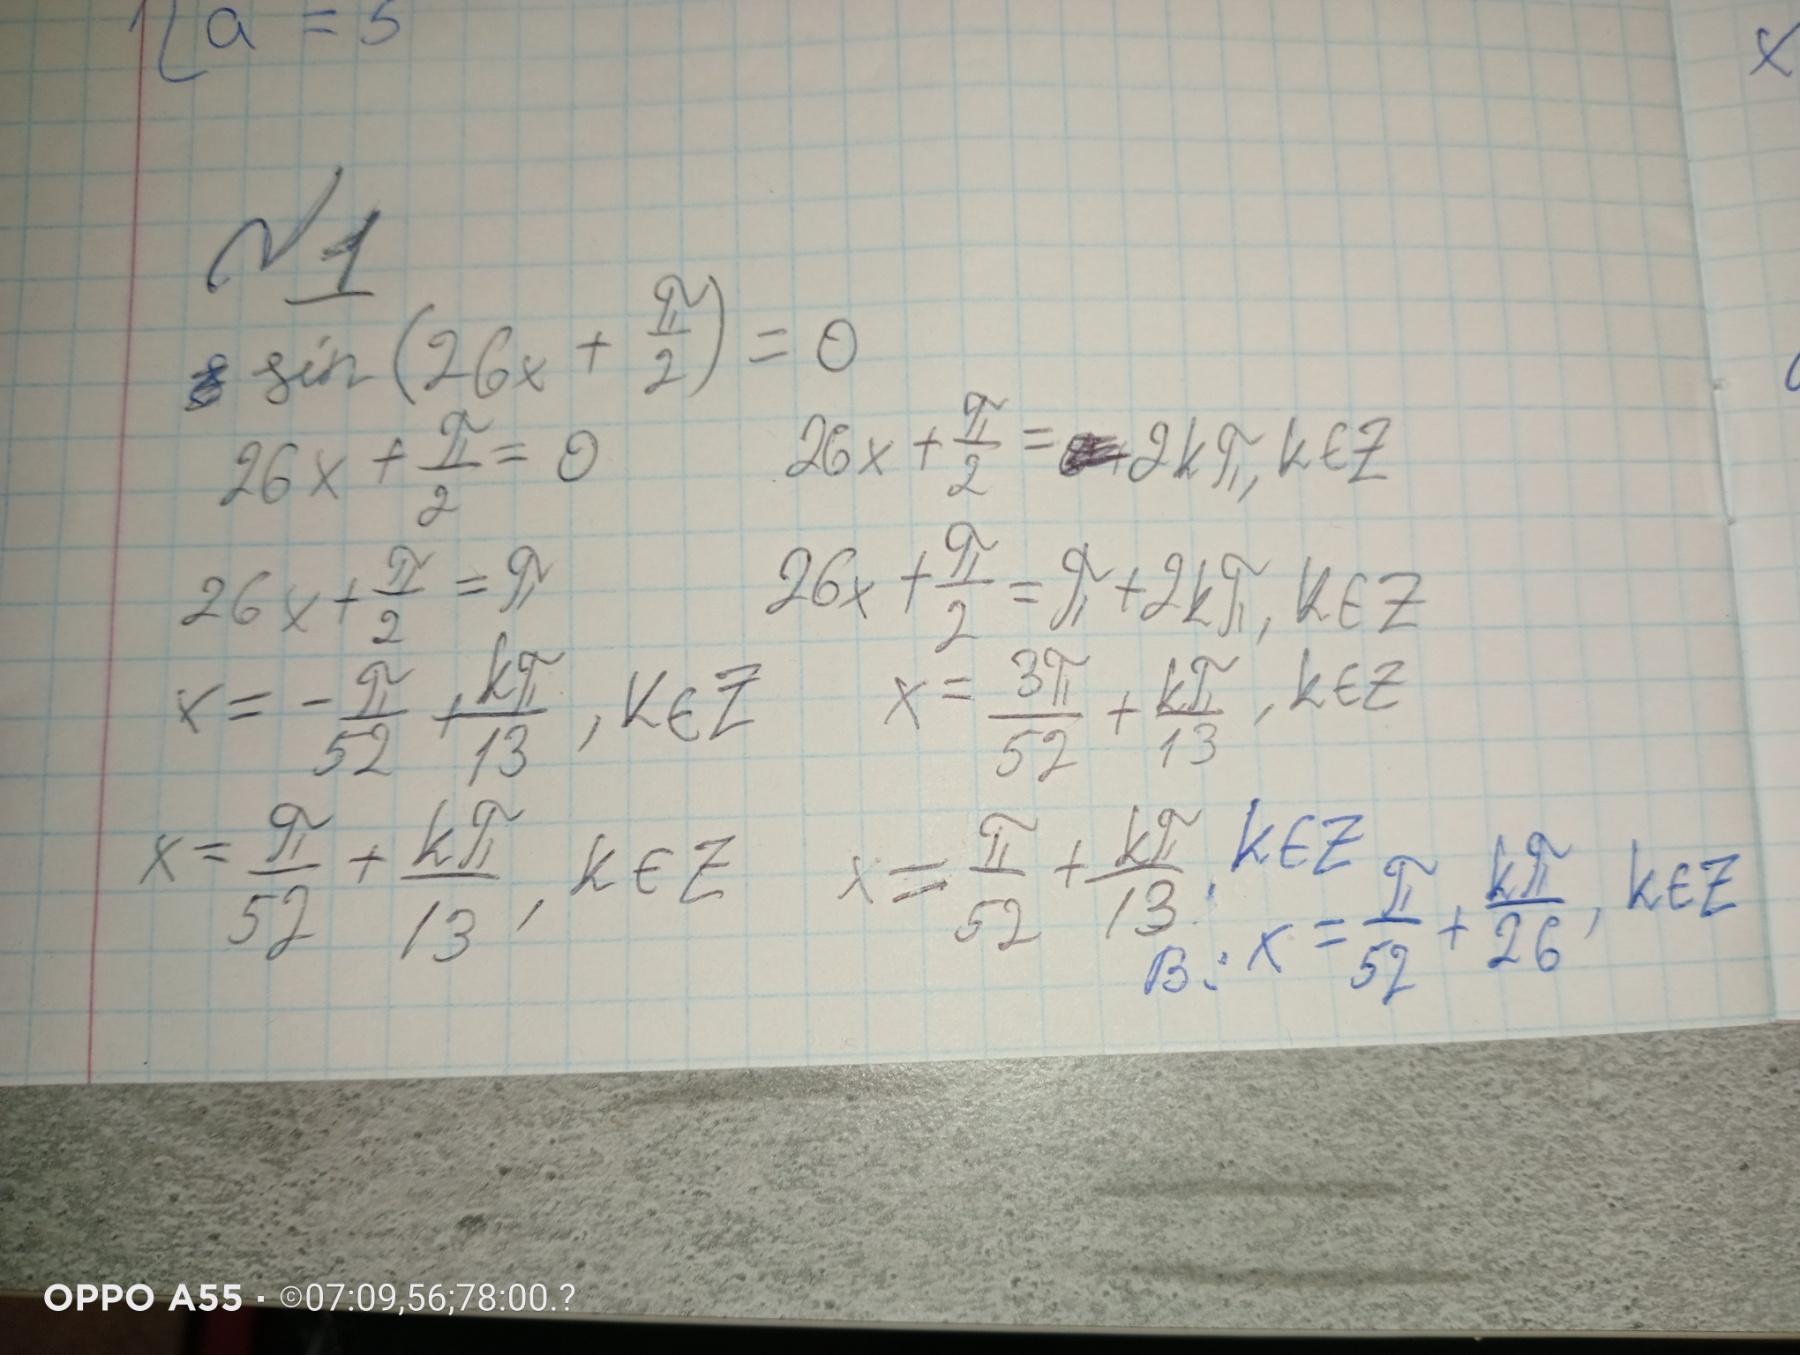 a = 5
x
№1
sin(26x + π/2) = 0
26x + π/2 = 0    26x + π/2 = +2kπ, k∈Z
26x + π/2 = π    26x + π/2 = π + 2kπ, k∈Z
x = -π/52 + kπ/13, k∈Z    x = 3π/52 + kπ/13, k∈Z
x = π/52 + kπ/13, k∈Z    x = π/52 + kπ/13, k∈Z
В: x = π/52 + kπ/26, k∈Z
OPPO A55 · ©07:09,56;78:00.?